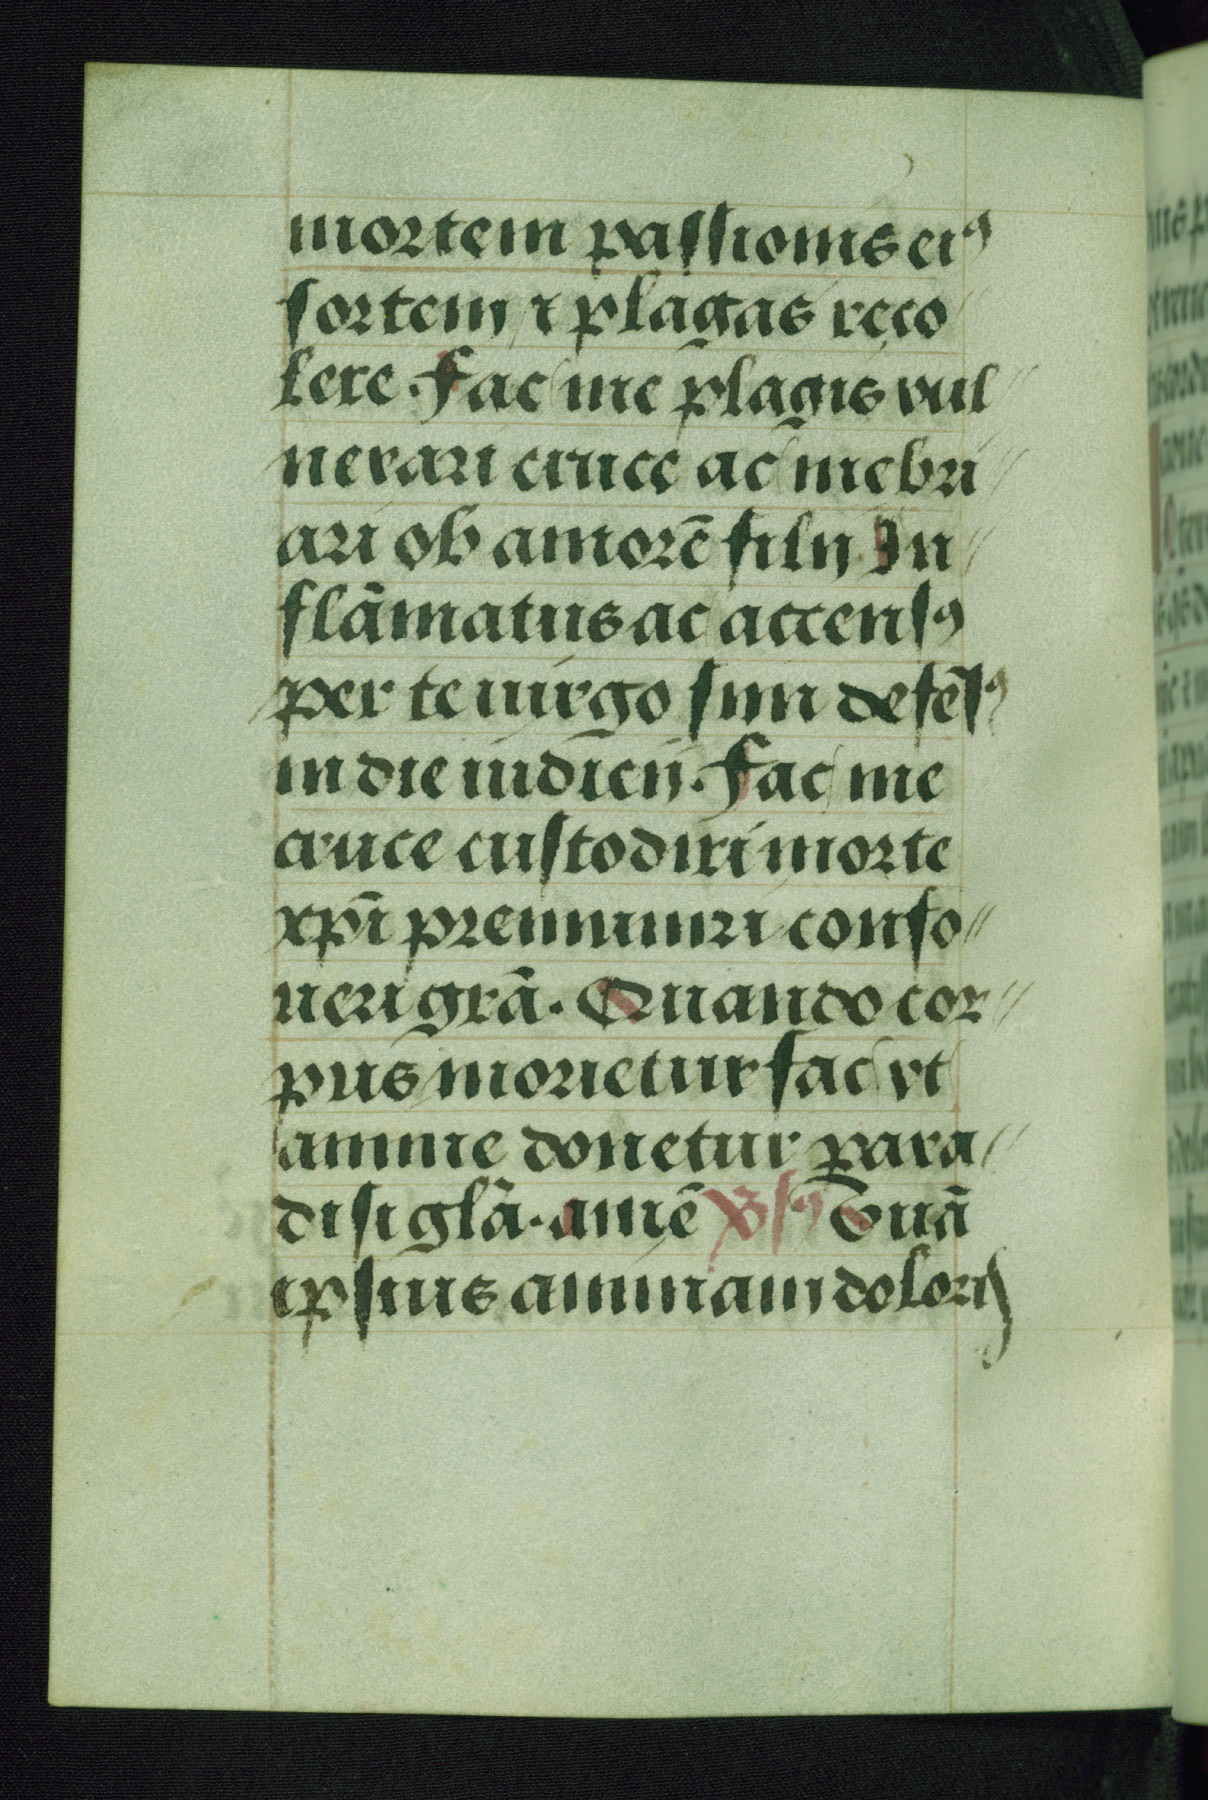 mortem passionis eiꝰ
sortem ⁊ plagas reco
lere. Fac me plagis vul
nerari cruce ac inebri
ari ob amorē filij In
flāmatus ac accensꝰ
per te uirgo sim defēsꝰ
in die iudicij. Fac me
cruce custodiri morte
xpī premuniri confo
ueri grā. Quando cor
pus morietur fac vt
anime donetur para
disi glā. amē Tuā
ipsius animam doloris